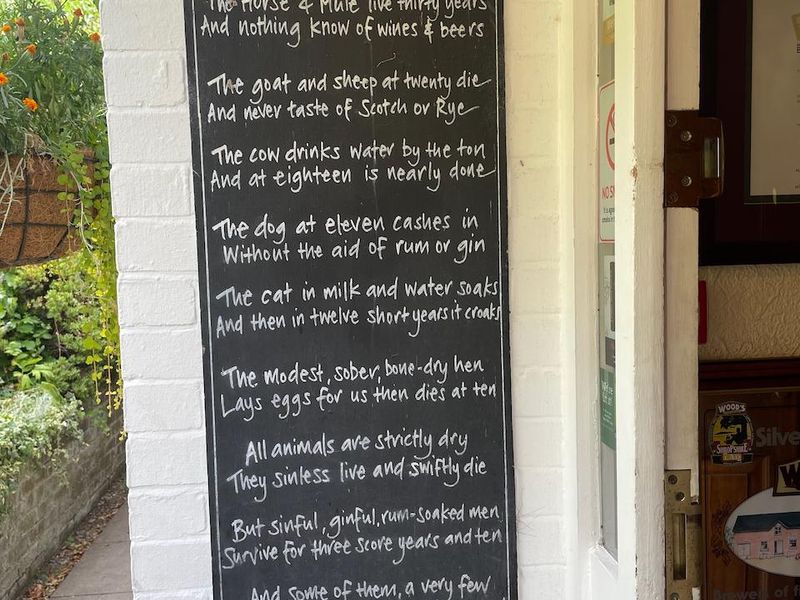 The Horse & Mule live thirty years
And nothing know of wines & beers
The goat and sheep at twenty die
And never taste of Scotch or Rye
The cow drinks water by the ton
And at eighteen is nearly done
The dog at eleven cashes in
Without the aid of rum or gin
The cat in milk and water soaks
And then in twelve short years it croaks
The modest, sober, bone-dry hen
Lays eggs for us then dies at ten
All animals are strictly dry
They sinless live and swiftly die
But sinful, ginful, rum-soaked men
Survive for three score years and ten
And some of them, a very few
NO
WOOD'S
SHROPSHIRE
Silve
W
of